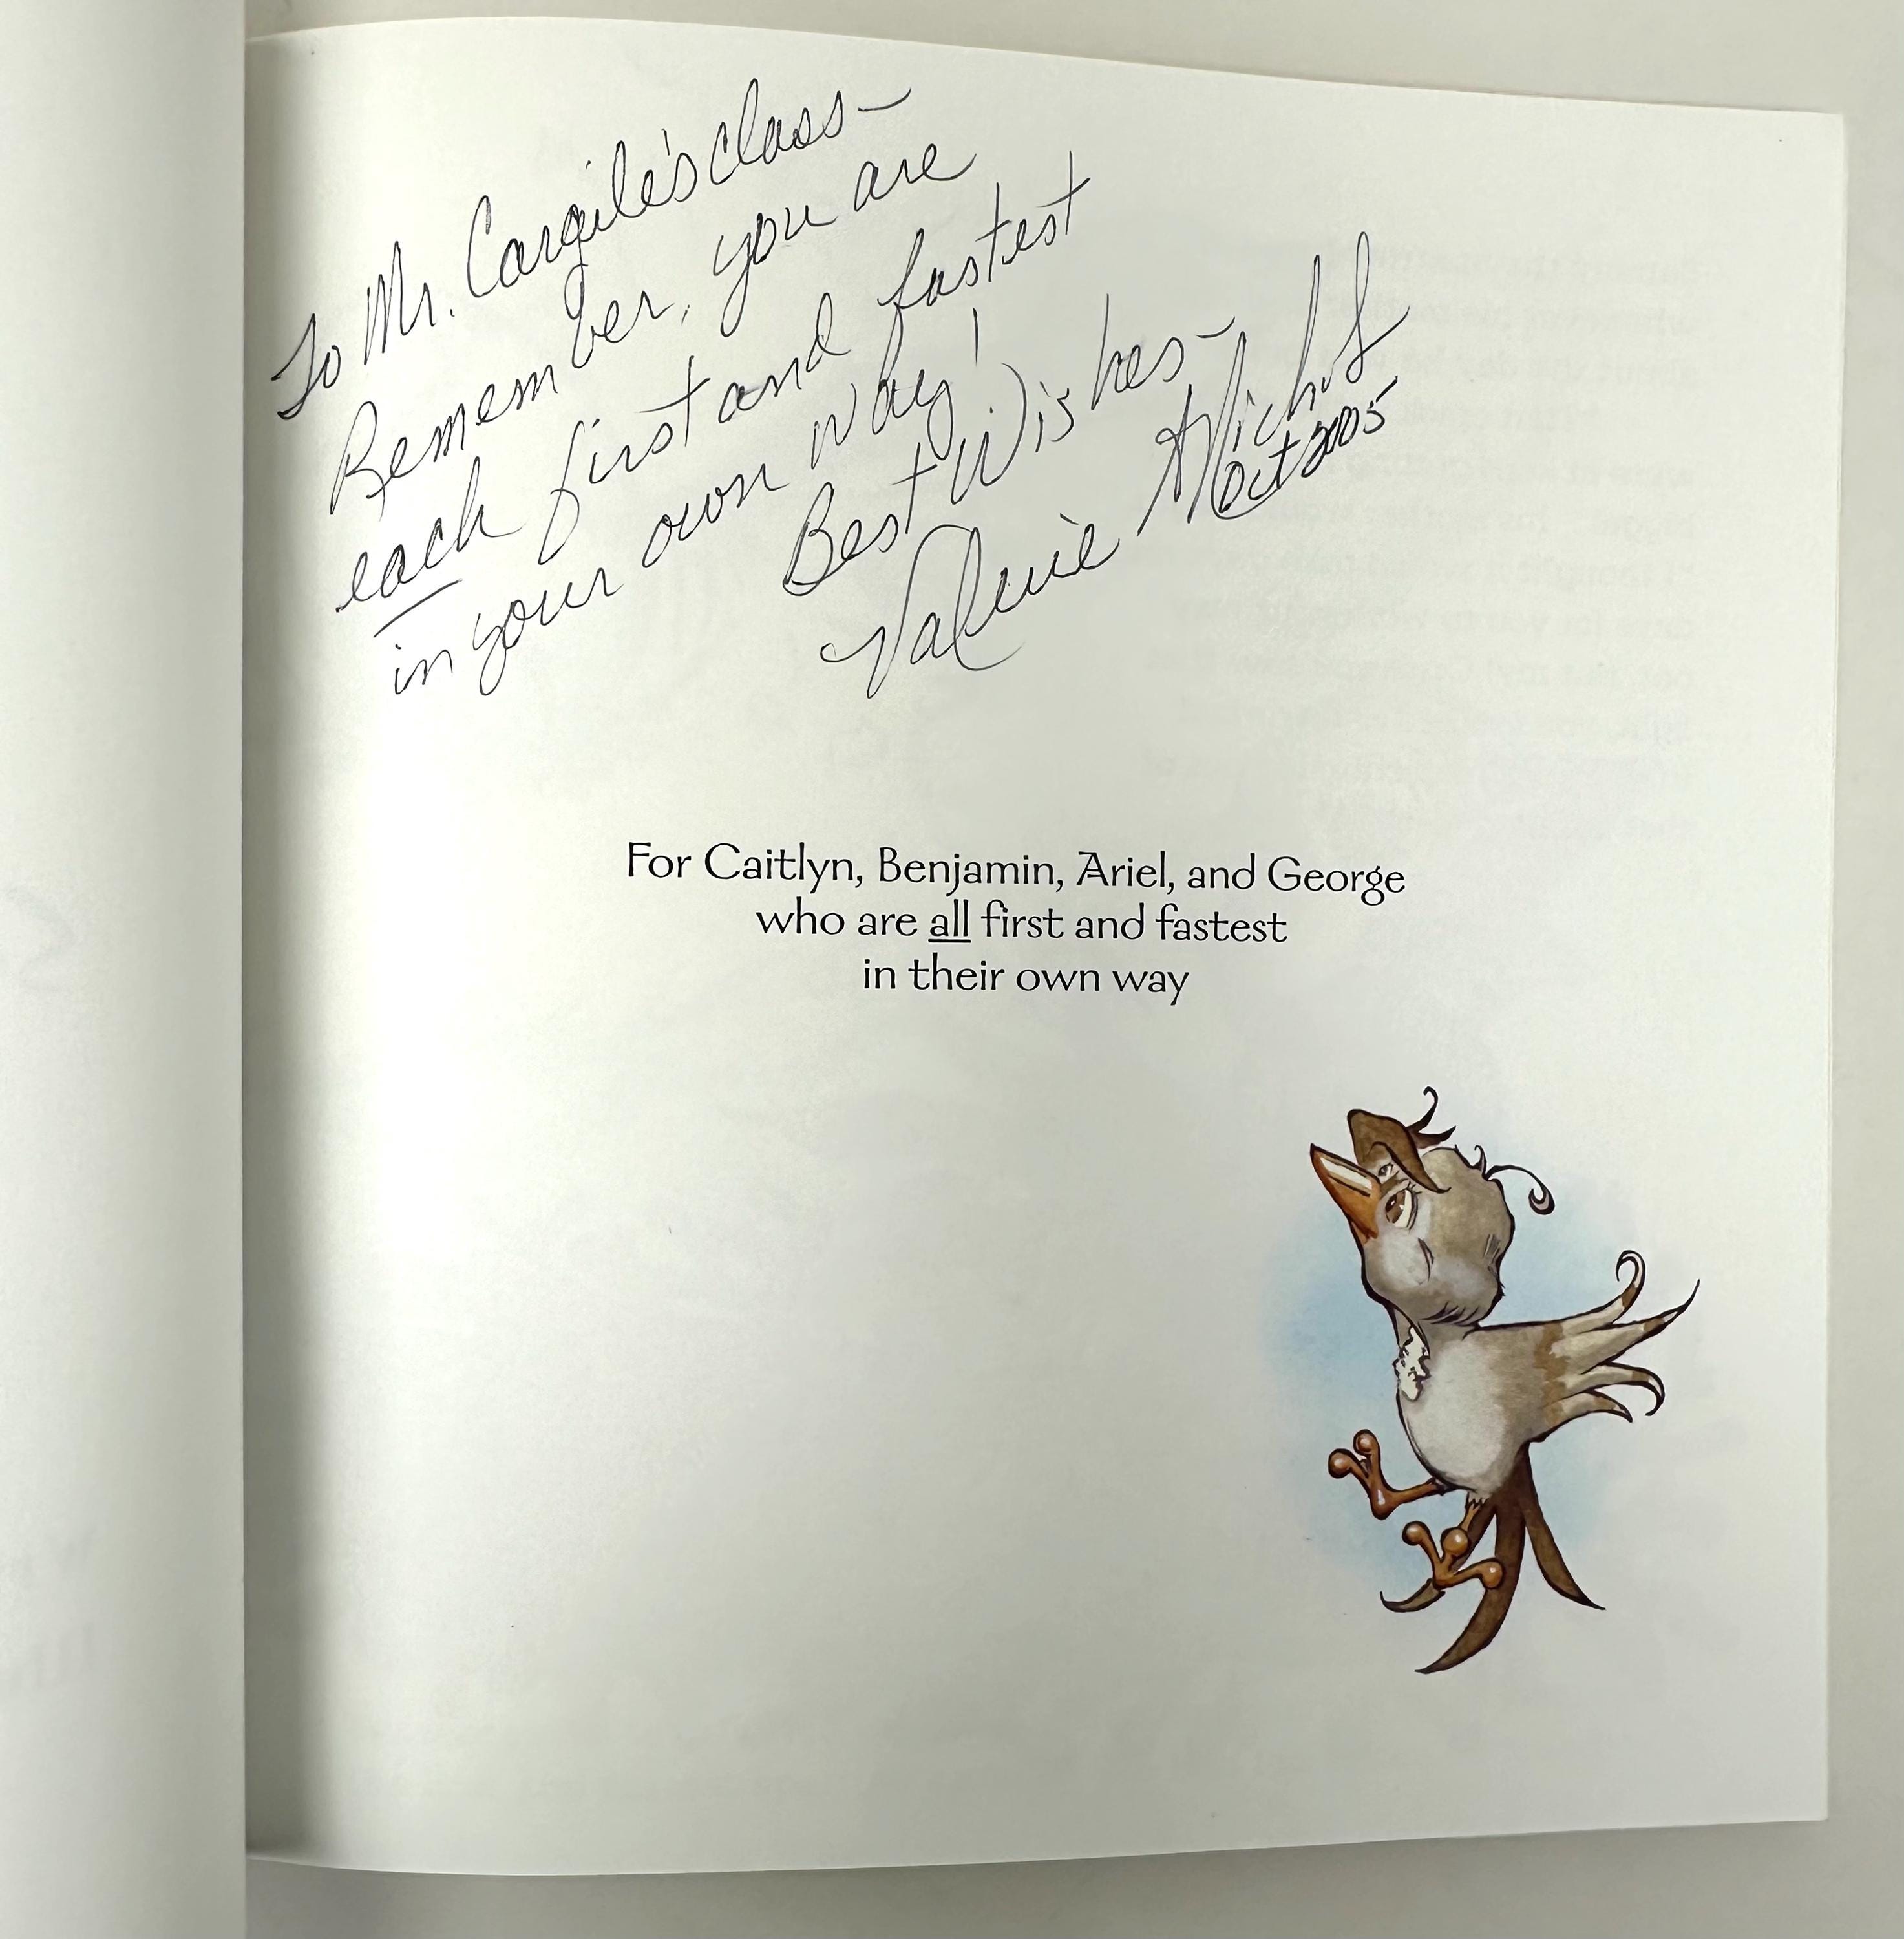 To Mr. Cargile's class-
Remember, you are
each first and fastest
in your own way!
Best Wishes-
Valerie
Oct 2005
For Caitlyn, Benjamin, Ariel, and George
who are all first and fastest
in their own way